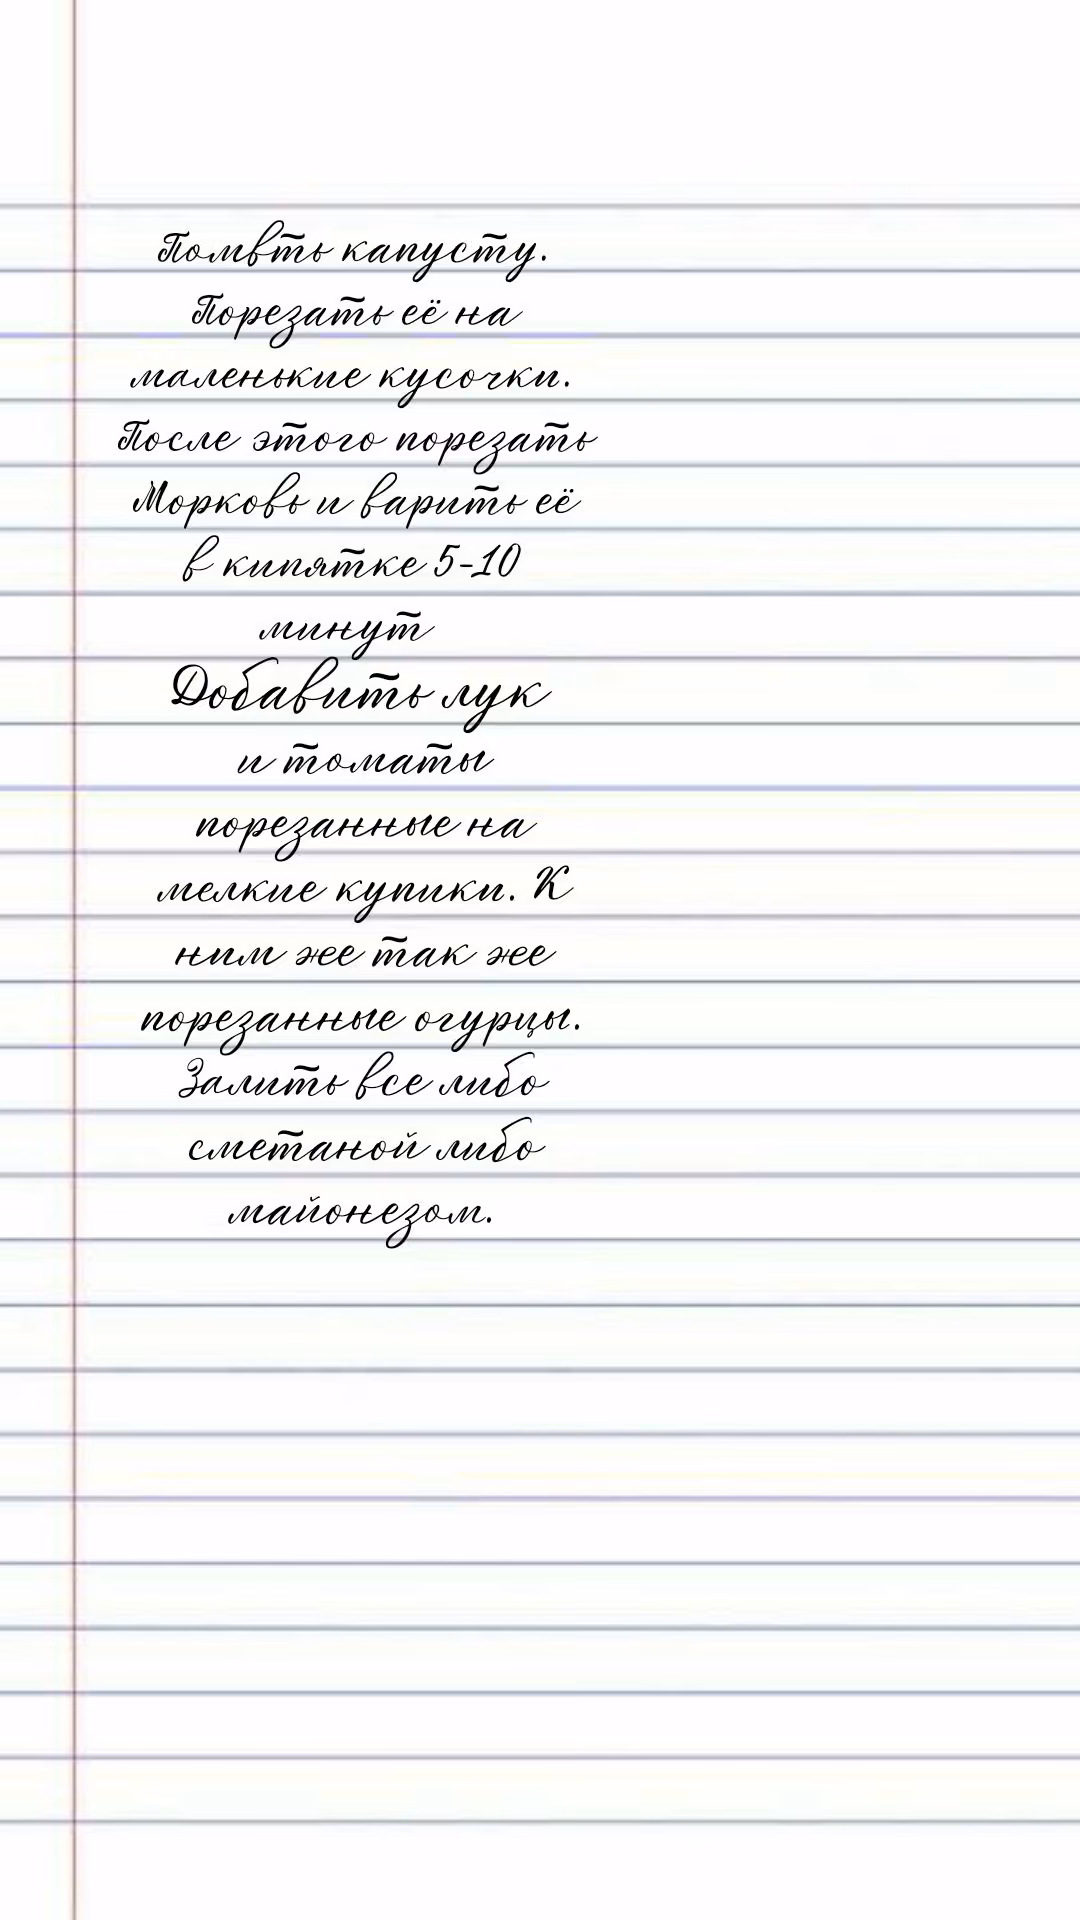 Помвть капусту.
Порезать её на
маленькие кусочки.
После этого порезать
Морковь и варить её
в кипятке 5-10
минут
Добавить лук
и томаты
порезанные на
мелкие купики. К
ним же так же
порезанные огурцы.
Залить все либо
сметаной либо
майонезом.